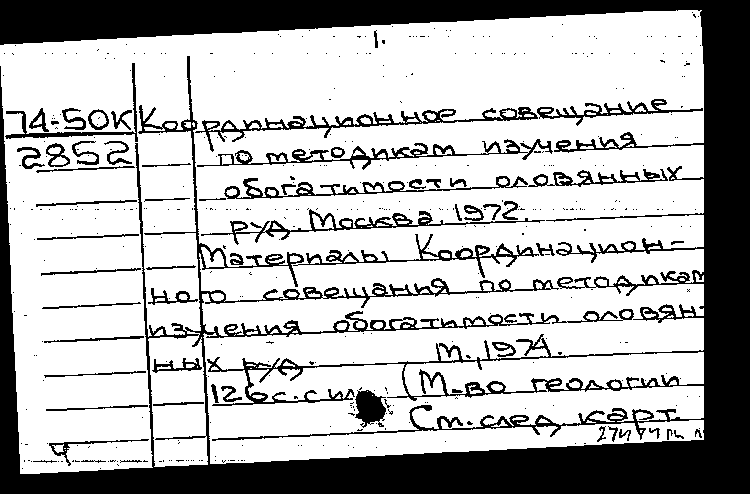 1.
74-50К Координационное совещание
2852 по методикам изучения
обогатимости оловянных
руд. Москва. 1972.
Материалы Координацион-
ного совещания по методикам
изучения обогатимости оловян-
ных руд. М., 1974.
126 с. с ил. (М-во геологии
См. след. карт.
Ч